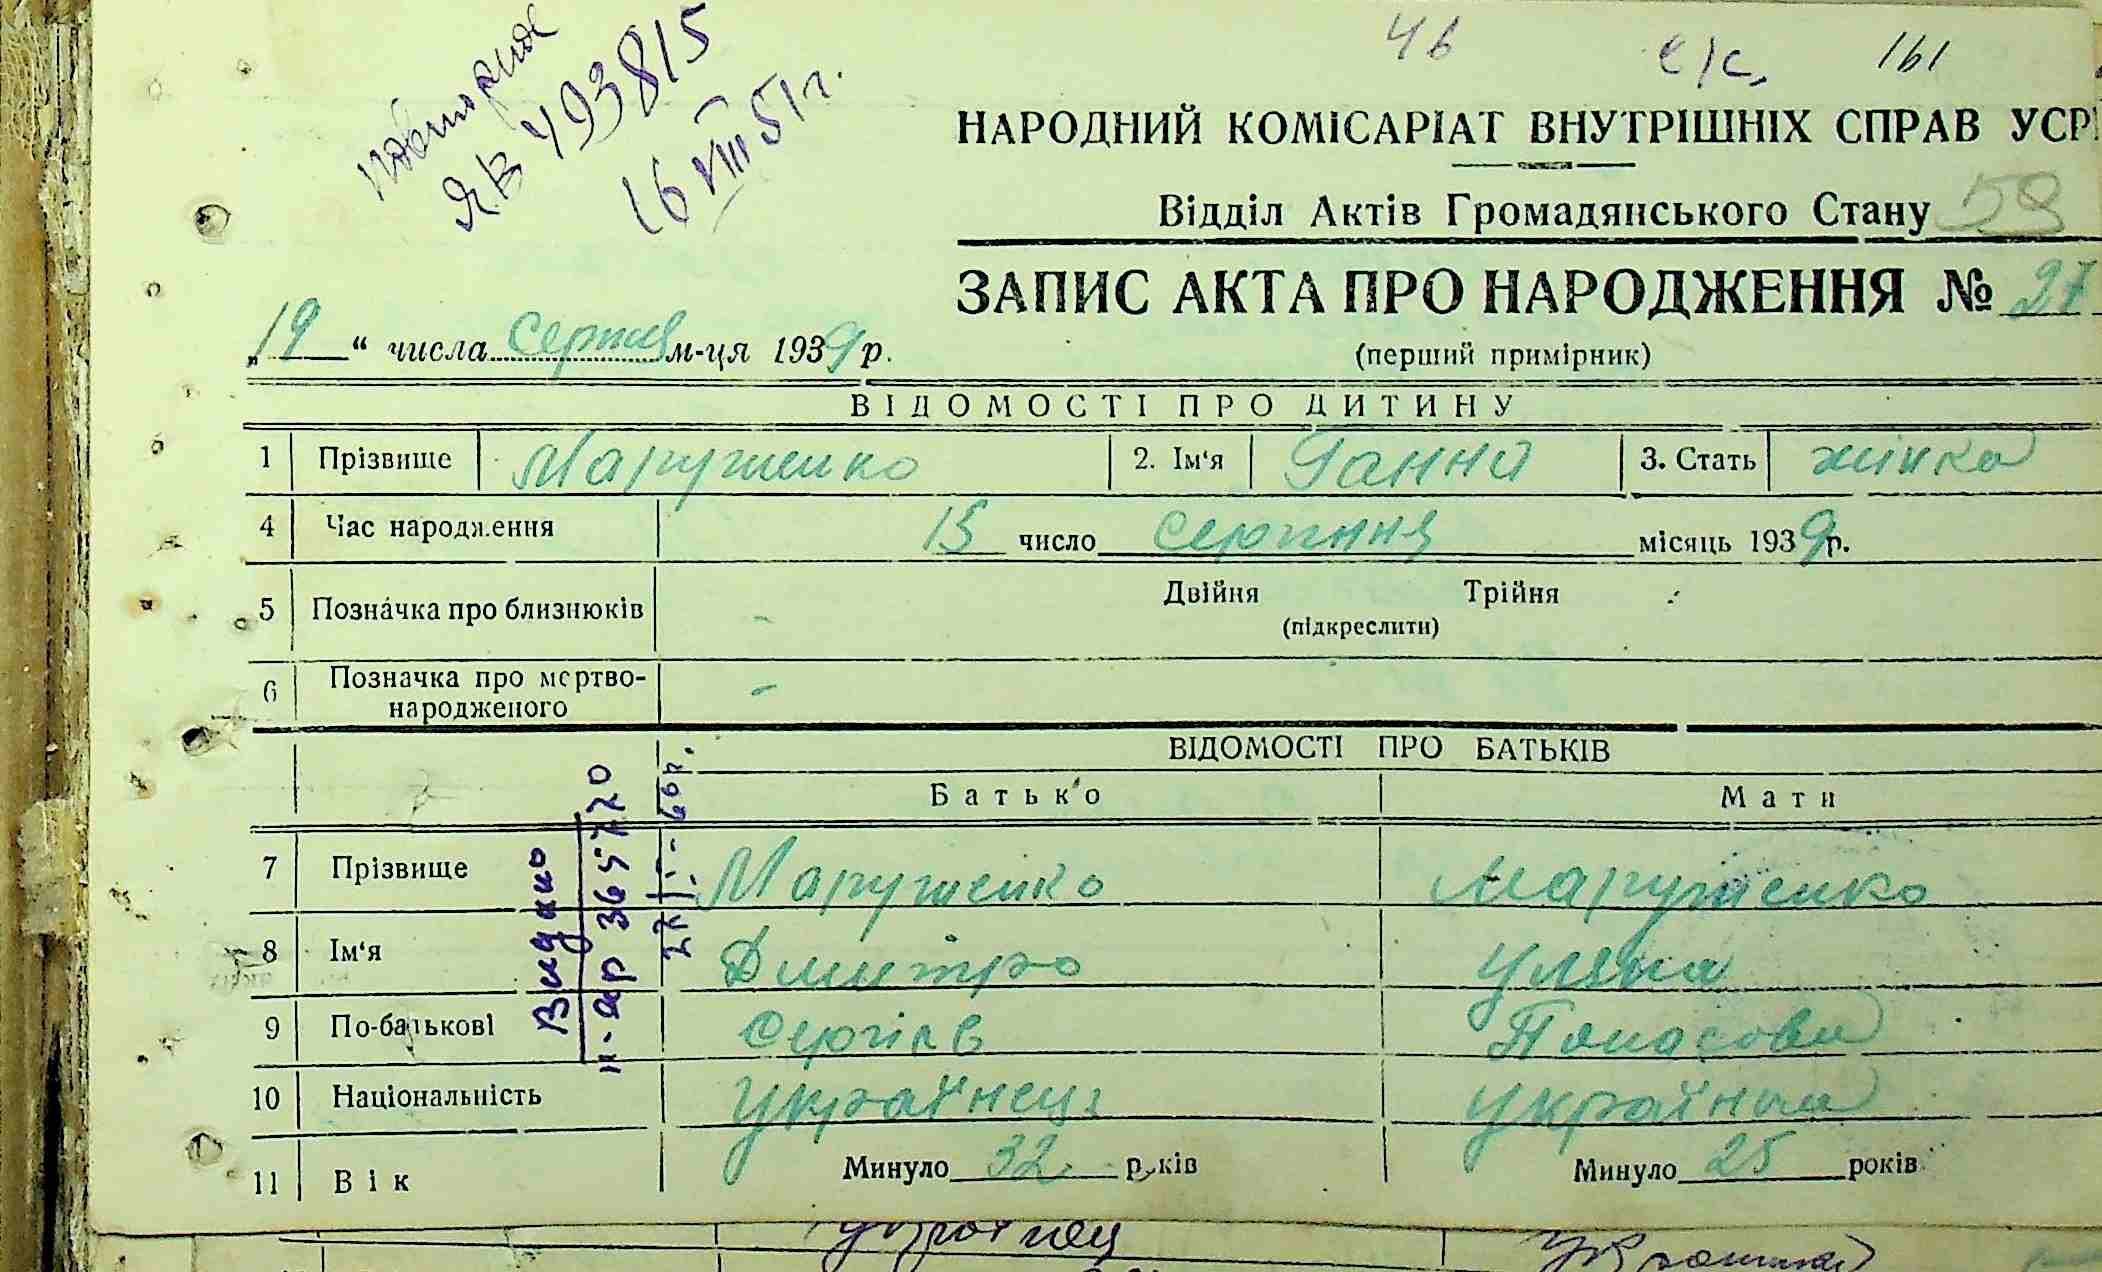 повторне
ЯВ 493815
16 VIII 51 г.
46 с/с. 161
НАРОДНИЙ КОМІСАРІАТ ВНУТРІШНІХ СПРАВ УСР
Відділ Актів Громадянського Стану 59
ЗАПИС АКТА ПРО НАРОДЖЕННЯ № 27
„19“ числа серпня м-ця 1939 р.
(перший примірник)
ВІДОМОСТІ ПРО ДИТИНУ
1 Прізвище Марушенко 2. Ім‘я Ганна 3. Стать жінка
4 Час народження 15 число серпння місяць 1939 р.
5 Позначка про близнюків - Двійня Трійня
(підкреслити)
6 Позначка про мертво-
народженого -
ВІДОМОСТІ ПРО БАТЬКІВ
Батько Мати
7 Прізвище Марушенко Марушенко
8 Ім‘я Дмитро Уляна
9 По-батькові Сергіїв Панасовна
10 Національність українець українка
11 Вік Минуло 32 років Минуло 25 років
Видано
II-яр 365770
27/I-66р.
Українец